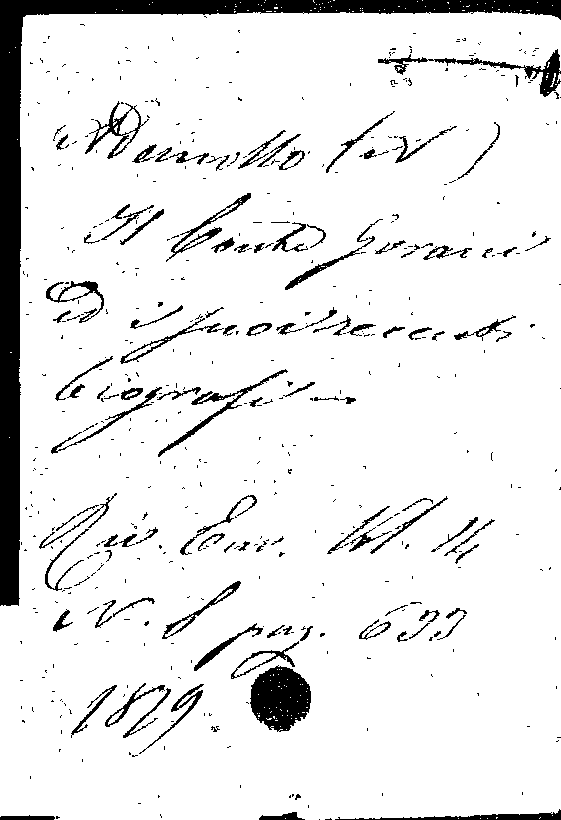 Ademollo (A)
Il Conte Gorani
ed i suoi recenti
biografi —
Riv. Eur. Vol. 14
N. 8 pag. 633
1879